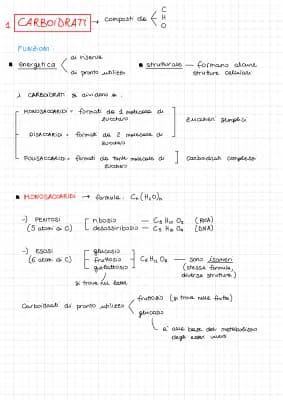 1 CARBOIDRATI → composti da C
H
O
FUNZIONI:
energetica di riserva
di pronto utilizzo
strutturale → formano alcune strutture cellulari
I CARBOIDRATI si dividono:
MONOSACCARIDI = formati da 1 molecola di zucchero
DISACCARIDI = formati da 2 molecole di zucchero
zuccheri semplici
POLISACCARIDI = formati da tante molecole di zucchero
carboidrati complessi
MONOSACCARIDI → formula: Cn(H2O)n
-) PENTOSI (5 atomi di C)
ribosio — C5 H10 O5 (RNA)
desossiribosio — C5 H10 O4 (DNA)
-) ESOSI (6 atomi di C)
glucosio
fruttosio
galattosio
C6 H12 O6 → sono isomeri
(stessa formula, diversa struttura)
si trova nel latte
Carboidrati di pronto utilizzo
fruttosio (si trova nella frutta)
glucosio
è alla base del metabolismo degli esseri vivi